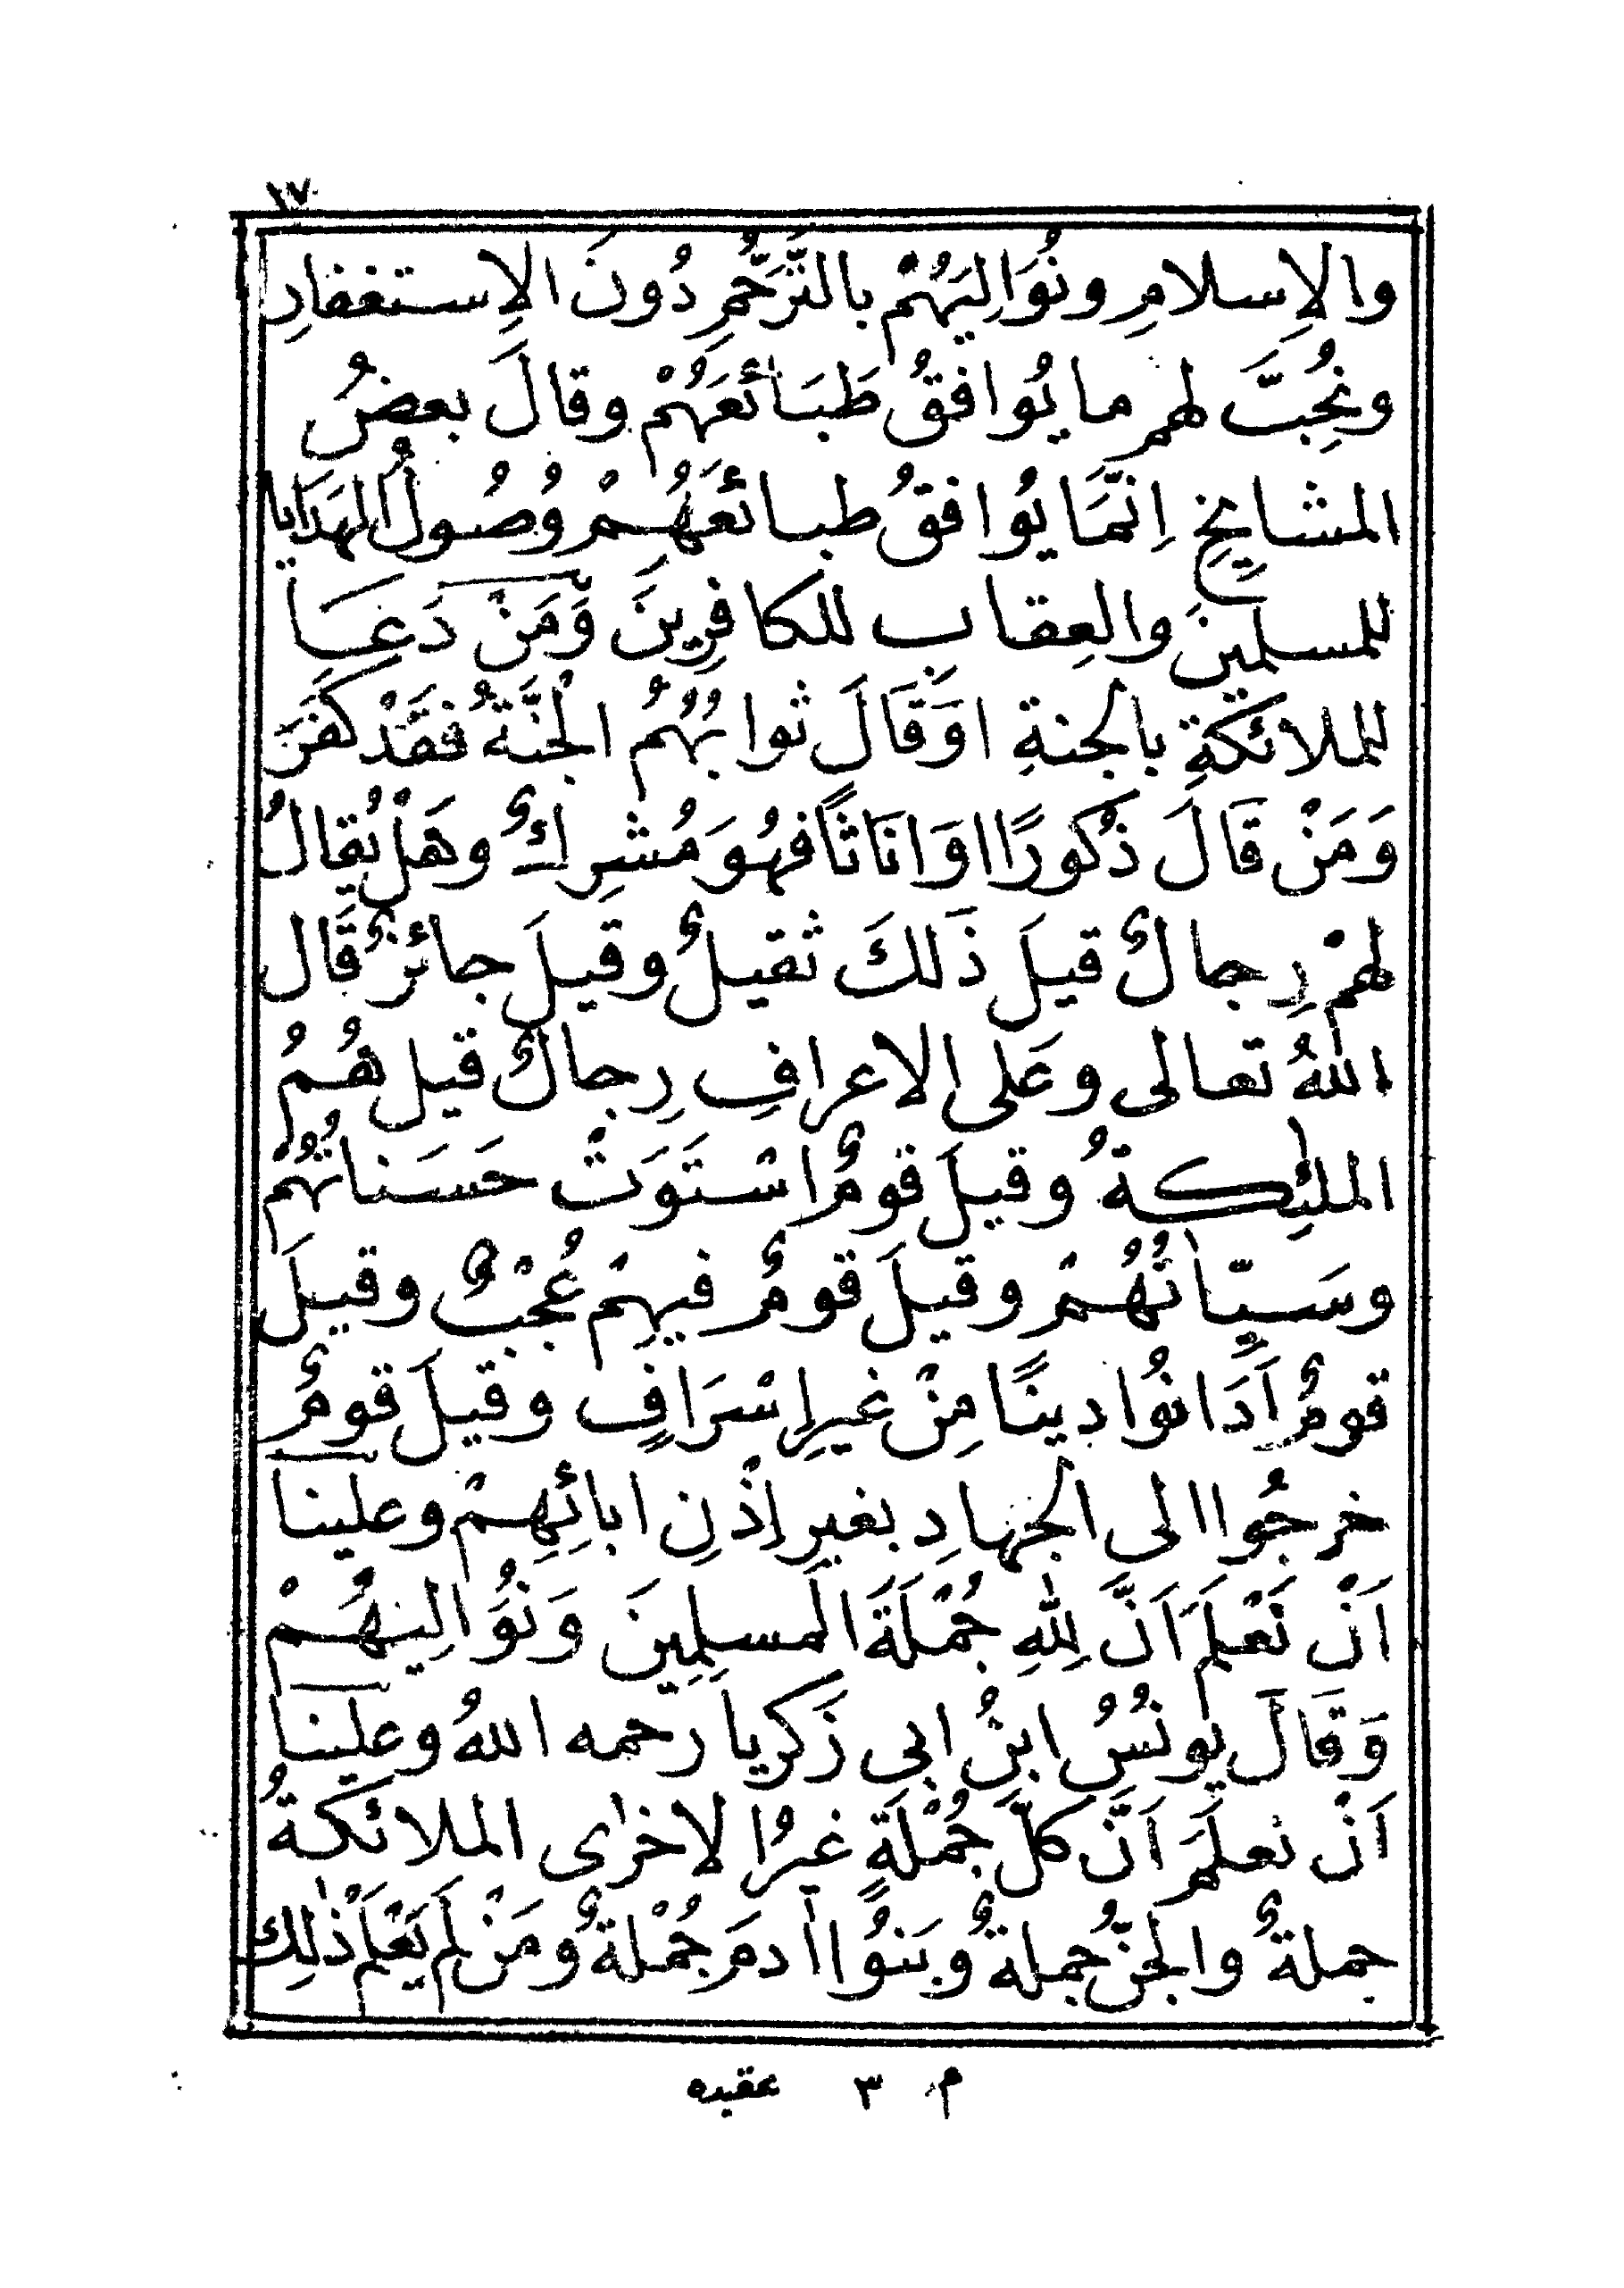 ١٧
والاِسلامِ ونُوَالِيَهُمْ بالتَّرَحُّمِ دُونَ الاِستغفارِ
ونُحِبَّ لهم ما يُوافقُ طَبَائعَهُمْ وقالَ بعضُ
المشايخِ اِنَّمَا يُوافقُ طبائعَهُمْ وُصُولُ الهَدَايا
للمسلمينَ والعِقابِ للكافرِينَ وَمَنْ دَعَا
للملائكةِ بالجنةِ اوَقَالَ ثوابُهُمُ الْجَنَّةُ فقَدْ كَفَرَ
وَمَنْ قَالَ ذُكورًا اوَاناثًا فهُوَ مُشرِكٌ وهَلْ يُقالُ
لهمْ رِجالٌ قيلَ ذَلكَ ثقيلٌ وقيلَ جائزٌ قَال
اللهُ تعالى وعَلى الاعرافِ رِجالٌ قيل هُمُ
الملئكةُ وقيلَ قومٌ اسْتَوَتْ حَسَناتُهُمْ
وسَيِّاتُهُمْ وقيلَ قومٌ فيهِمْ عُجْبٌ وقيلَ
قومٌ اَدَانُوا دينًا مِنْ غيرِ اِسْرَافٍ وقيلَ قومٌ
خرجُوا الى الجهادِ بغيرِ اِذْنِ ابائِهِمْ وعلينا
اَنْ نَعْلَمَ اَنَّ لِلّٰهِ جُمْلَةَ المسلِمِينَ وَنُوَالِيَهُمْ
وَقَالَ يونُسُ ابنُ ابى زَكريا رحمه اللهُ وعلينا
اَنْ نعلَمَ اَنَّ كلَّ جُمْلَةٍ غيرُ الاخرٰى الملائكةُ
جملةٌ والجنُّ جملةٌ وبَنُوا اٰدمَ جُمْلةٌ ومَنْ لَمْ يَعْلَمْ ذٰلِكَ
م ٣ عقيده